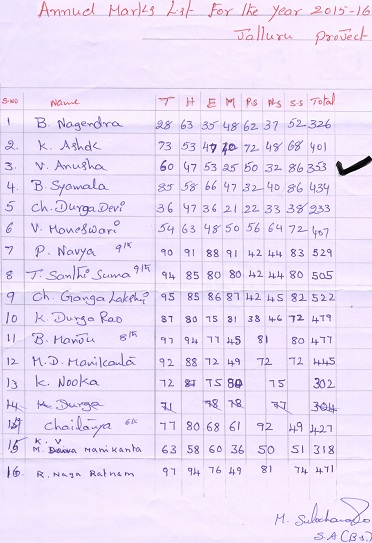 Annual Marks List For the Year 2015-16
Jalluru project
S.NO Name T H E M P.S N.S S.S Total
1 B. Nagendra 28 63 35 48 62 37 52 326
2. K. Ashok 73 53 47 70 72 48 68 401
3. V. Anusha 60 47 53 25 50 32 86 353
4. B. Syamala 85 58 66 47 32 40 86 434
5 Ch. Durga Devi 36 47 36 21 22 33 38 233
6 V. Maneswari 54 63 48 50 56 64 72 407
7 P. Navya 90 91 88 91 42 44 83 529
8 T. Santhi Suma 94 85 80 80 42 44 80 505
9 Ch. Ganga Lakshmi 95 85 86 87 42 45 82 522
10 K. Durga Rao 87 80 75 81 38 46 72 479
11 B. Manou 97 94 77 45 81 80 477
12 M.D. Manikanta 92 88 72 49 72 72 445
13 K. Nooka 72 87 75 80 75 302
14 K. Durga 71 78 78 77 304
Chaitanya 77 80 68 61 92 49 427
15 K. V
M. Manikanta 63 58 60 36 50 51 318
16 R. Naga Ratnam 97 94 76 49 81 74 471
S.A (B.S.)